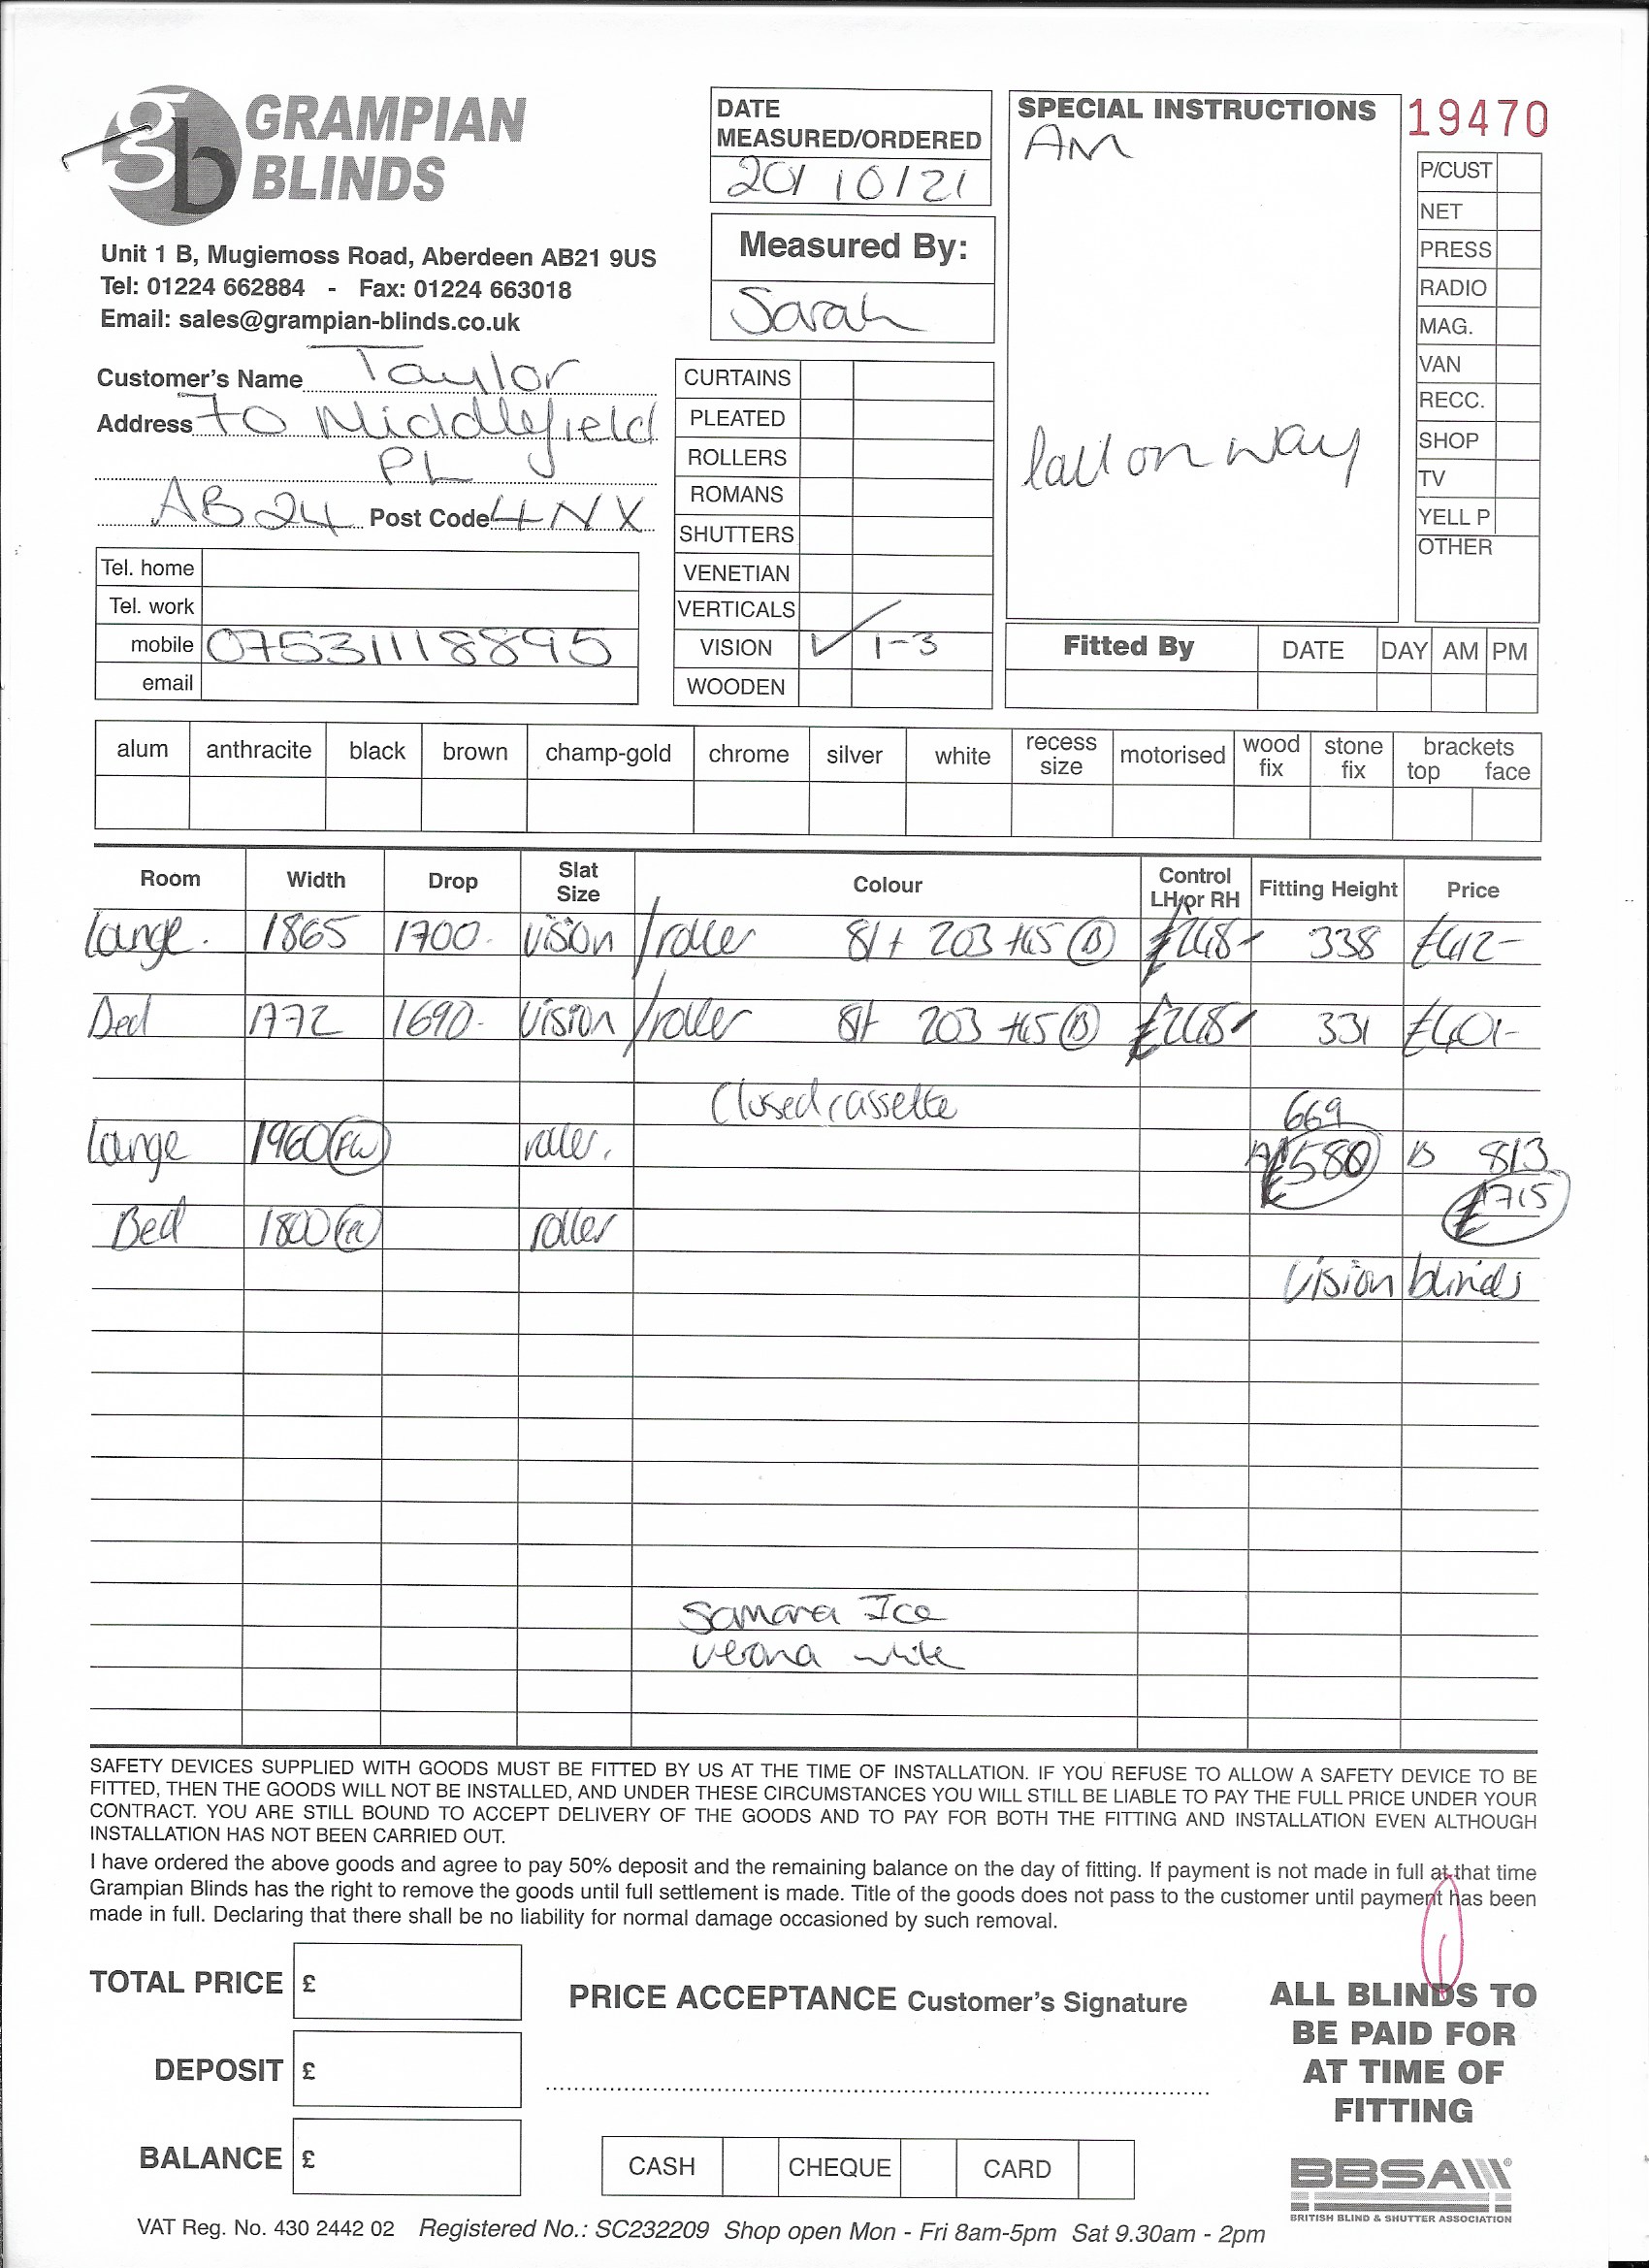 gb GRAMPIAN
BLINDS
Unit 1 B, Mugiemoss Road, Aberdeen AB21 9US
Tel: 01224 662884 - Fax: 01224 663018
Email: sales@grampian-blinds.co.uk
Customer's Name Taylor
Address 70 Middlefield
PL
AB24 Post Code 4NX
Tel. home
Tel. work
mobile 07531118895
email
DATE
MEASURED/ORDERED
20/10/21
Measured By:
Sarah
CURTAINS
PLEATED
ROLLERS
ROMANS
SHUTTERS
VENETIAN
VERTICALS
VISION ✓ 1-3
WOODEN
SPECIAL INSTRUCTIONS
AM
Call on way
19470
P/CUST
NET
PRESS
RADIO
MAG.
VAN
RECC.
SHOP
TV
YELL P
OTHER
Fitted By DATE DAY AM PM
alum anthracite black brown champ-gold chrome silver white recess size motorised wood fix stone fix brackets top face
Room Width Drop Slat Size Colour Control LH or RH Fitting Height Price
Lounge. 1865 1700. Vision /roller 81+ 203 +45 (B) £248- 338 £412-
Bed 1772 1690- Vision /roller 81+ 203 +45 (B) £248- 331 £401-
Closed cassette 669
Lounge 1960 (FW) roller. £580 B 813
£715
Bed 1800 roller
Vision blinds
Samara Ice
Verona white
SAFETY DEVICES SUPPLIED WITH GOODS MUST BE FITTED BY US AT THE TIME OF INSTALLATION. IF YOU REFUSE TO ALLOW A SAFETY DEVICE TO BE
FITTED, THEN THE GOODS WILL NOT BE INSTALLED, AND UNDER THESE CIRCUMSTANCES YOU WILL STILL BE LIABLE TO PAY THE FULL PRICE UNDER YOUR
CONTRACT. YOU ARE STILL BOUND TO ACCEPT DELIVERY OF THE GOODS AND TO PAY FOR BOTH THE FITTING AND INSTALLATION EVEN ALTHOUGH
INSTALLATION HAS NOT BEEN CARRIED OUT.
I have ordered the above goods and agree to pay 50% deposit and the remaining balance on the day of fitting. If payment is not made in full at that time
Grampian Blinds has the right to remove the goods until full settlement is made. Title of the goods does not pass to the customer until payment has been
made in full. Declaring that there shall be no liability for normal damage occasioned by such removal.
TOTAL PRICE £
DEPOSIT £
BALANCE £
PRICE ACCEPTANCE Customer's Signature
CASH CHEQUE CARD
ALL BLINDS TO
BE PAID FOR
AT TIME OF
FITTING
BBSA
BRITISH BLIND & SHUTTER ASSOCIATION
VAT Reg. No. 430 2442 02 Registered No.: SC232209 Shop open Mon - Fri 8am-5pm Sat 9.30am - 2pm